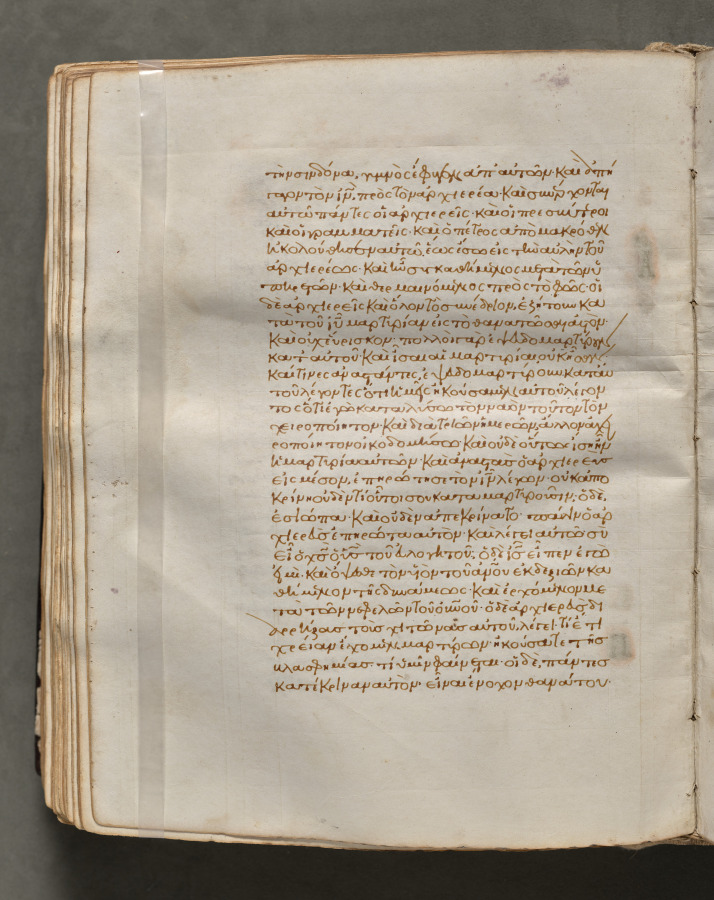 τὴν σινδόνα, γυμνὸς ἔφυγεν ἀπ' αὐτῶν· Καὶ ἀπή
γαγον τὸν ἰν̄, πρὸς τὸν ἀρχιερέα· Καὶ συνέρχονται
αὐτῶ πάντες οἱ ἀρχιερεῖς· καὶ οἱ πρεσβύτεροι
καὶ οἱ γραμματεῖς· Καὶ ὁ πέτρος ἀπο μακρόθεν
ἠκολούθησεν αὐτῶ, ἕως ἔσω εἰς τὴν αὐλὴν τοῦ
ἀρχιερέως· Καὶ ἦν συγκαθήμενος μετὰ τῶν ὑ
πηρετῶν· Καὶ θερμαινόμενος πρὸς τὸ φῶς· οἱ
δὲ ἀρχιερεῖς Καὶ ὅλον τὸ συνέδριον, ἐζήτουν κα
τὰ τοῦ ἰῡ μαρτυρίαν εἰς τὸ θανατῶσαι αὐτὸν·
Καὶ οὐχ εὕρισκον· πολλοὶ γὰρ ἐψευδομαρτύρουν
κατ' αὐτοῦ· Καὶ ἴσαι αἱ μαρτυρίαι οὐκ ἦσαν·
Καί τινες ἀναστάντες, ἐψευδομαρτύρουν κατ' αὐ
τοῦ λέγοντες ὅτι ἡμεῖς ἠκούσαμεν αὐτοῦ λέγον
τος ὅτι ἐγὼ καταλύσω τὸν ναὸν τοῦτον τὸν
χειροποίητον· Καὶ διὰ τριῶν ἡμερῶν, ἄλλον ἀχει
ροποίητον οἰκοδομήσω· Καὶ οὐδὲ οὕτως ἴση ἦν
ἡ μαρτυρία αὐτῶν· Καὶ ἀναστὰς ὁ ἀρχιερεὺς
εἰς μέσον, ἐπηρώτησε τὸν ἰν̄ λέγων· οὐκ ἀπο
κρίνη οὐδὲν τί οὗτοι σου καταμαρτυροῦσιν; ὁ δὲ,
ἐσιώπα· Καὶ οὐδὲν ἀπεκρίνατο· πάλιν ὁ ἀρ
χιερεὺς ἐπηρώτα αὐτὸν· Καὶ λέγει αὐτῶ σὺ
εἶ ὁ χς̄ ὁ υς̄ τοῦ εὐλογητοῦ; ὁ δὲ ις̄ εἶπεν ἐγώ
εἰμι· Καὶ ὄψεσθε τὸν υἱὸν τοῦ ἀνου̅ ἐκ δεξιῶν κα
θήμενον τῆς δυνάμεως· Καὶ ἐρχόμενον με
τὰ τῶν νεφελῶν τοῦ οὐνοῦ· ὁ δὲ ἀρχιερεὺς δι
αρρήξας τοὺς χιτῶνας αὐτοῦ, λέγει· τί ἔτι
χρείαν ἔχομεν μαρτύρων· ἠκούσατε τῆς
βλασφημίας· τί ὑμῖν φαίνεται· οἱ δὲ, πάντες
κατέκριναν αὐτὸν· εἶναι ἔνοχον θανάτου·